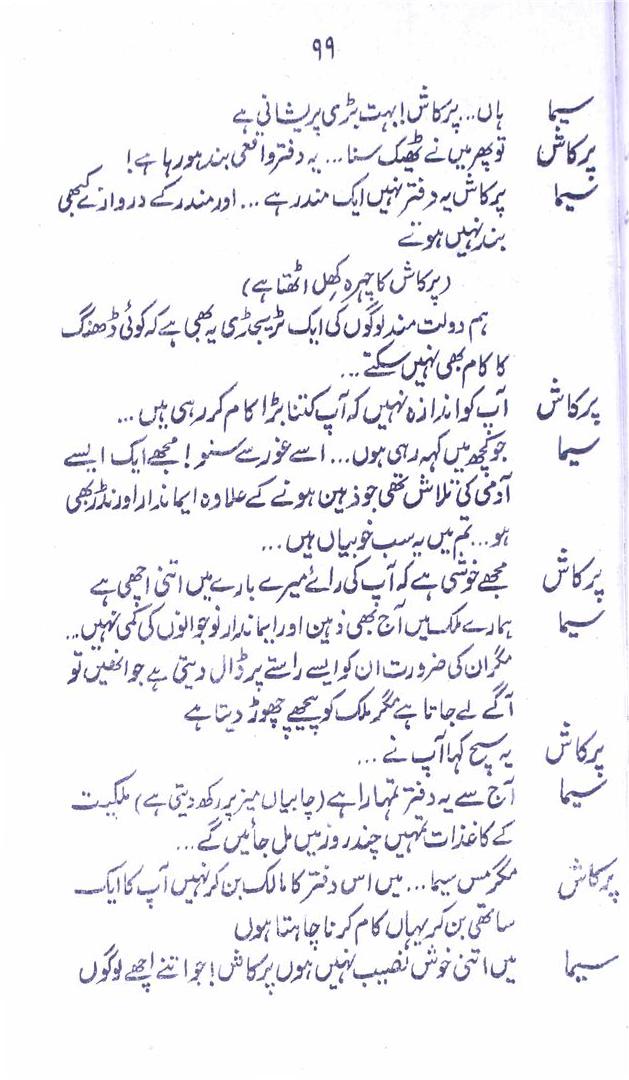 ۹۹
سیما ہاں... پرکاش! بہت بڑی پریشانی ہے
پرکاش تو پھر میں نے ٹھیک سنا... یہ دفتر واقعی بند ہو رہا ہے!
سیما پرکاش یہ دفتر نہیں ایک مندر ہے... اور مندر کے دروازے کبھی
بند نہیں ہوتے
(پرکاش کا چہرہ کھل اٹھتا ہے)
ہم دولت مند لوگوں کی ایک ٹریجڈی یہ بھی ہے کہ کوئی ڈھنگ
کا کام بھی نہیں سکتے...
پرکاش آپ کو اندازہ نہیں کہ آپ کتنا بڑا کام کر رہی ہیں...
سیما جو کچھ میں کہہ رہی ہوں... اسے غور سے سنو! مجھے ایک ایسے
آدمی کی تلاش تھی جو ذہین ہونے کے علاوہ ایماندار اور نڈر بھی
ہو... تم میں یہ سب خوبیاں ہیں...
پرکاش مجھے خوشی ہے کہ آپ کی رائے میرے بارے میں اتنی اچھی ہے
سیما ہمارے ملک میں آج بھی ذہین اور ایماندار نوجوانوں کی کمی نہیں...
مگر ان کی ضرورت ان کو ایسے راستے پر ڈال دیتی ہے جو انھیں تو
آگے لے جاتا ہے مگر ملک کو پیچھے چھوڑ دیتا ہے
پرکاش یہ سچ کہا آپ نے...
سیما آج سے یہ دفتر تمہارا ہے (چابیاں میز پر رکھ دیتی ہے) ملکیت
کے کاغذات تمہیں چند روز میں مل جائیں گے...
پرکاش مگر مس سیما... میں اس دفتر کا مالک بن کر نہیں آپ کا ایک
ساتھی بن کر یہاں کام کرنا چاہتا ہوں
سیما میں اتنی خوش نصیب نہیں ہوں پرکاش! جو اتنے اچھے لوگوں